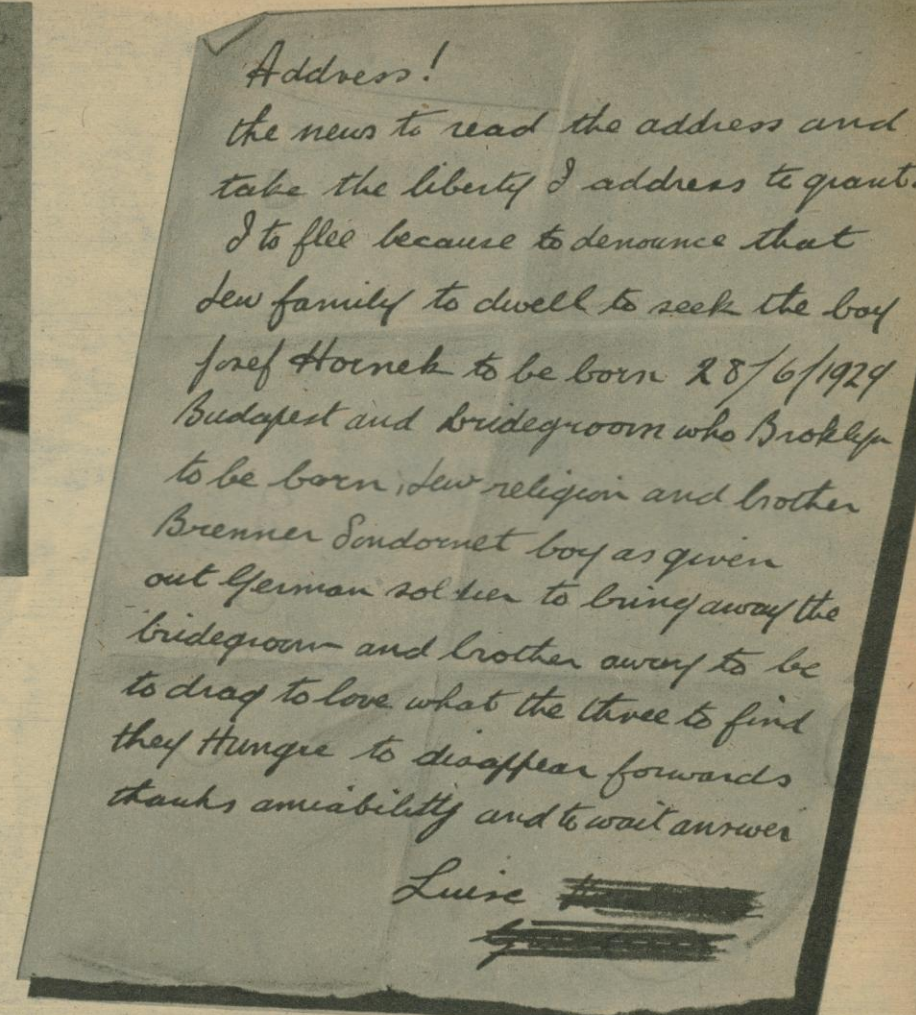 Address!
the news to read the address and
take the liberty I address to grant.
I to flee because to denounce that
Jew family to dwell to seek the boy
Josef Hornek to be born 28/6/1929
Budapest and bridegroom who Broklyn
to be born, Jew religion and brother
Brenner boy as given
out German soldier to bring away the
bridegroom and brother away to be
to drag to love what the three to find
they Hungre to disappear forwards
thanks amiability and to wait answer
Luise